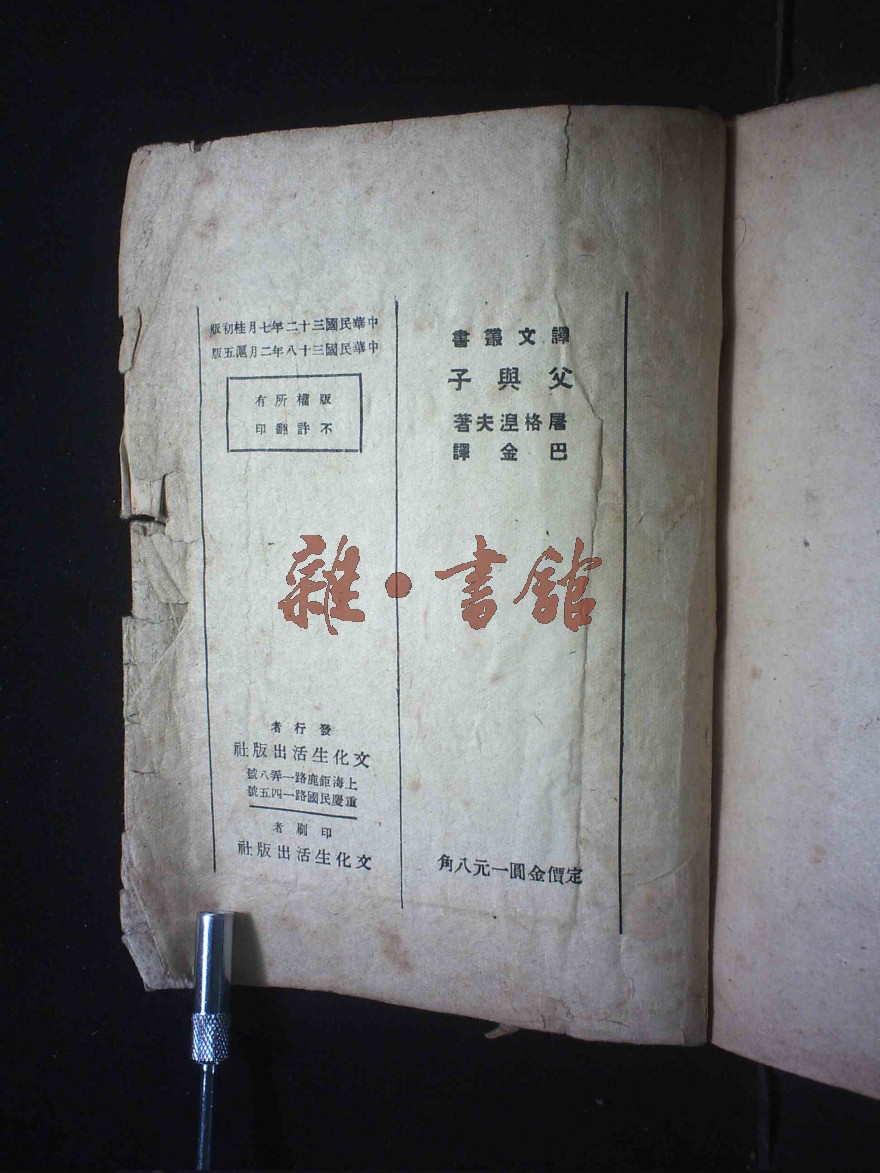 譯文叢書
父與子
屠格涅夫著
巴金譯
定價金圓一元八角
中華民國三十二年七月桂初版
中華民國三十八年二月滬五版
版權所有
不許翻印
發行者
文化生活出版社
上海鉅鹿路一弄八號
重慶民國路一四五號
印刷者
文化生活出版社
雜·書館